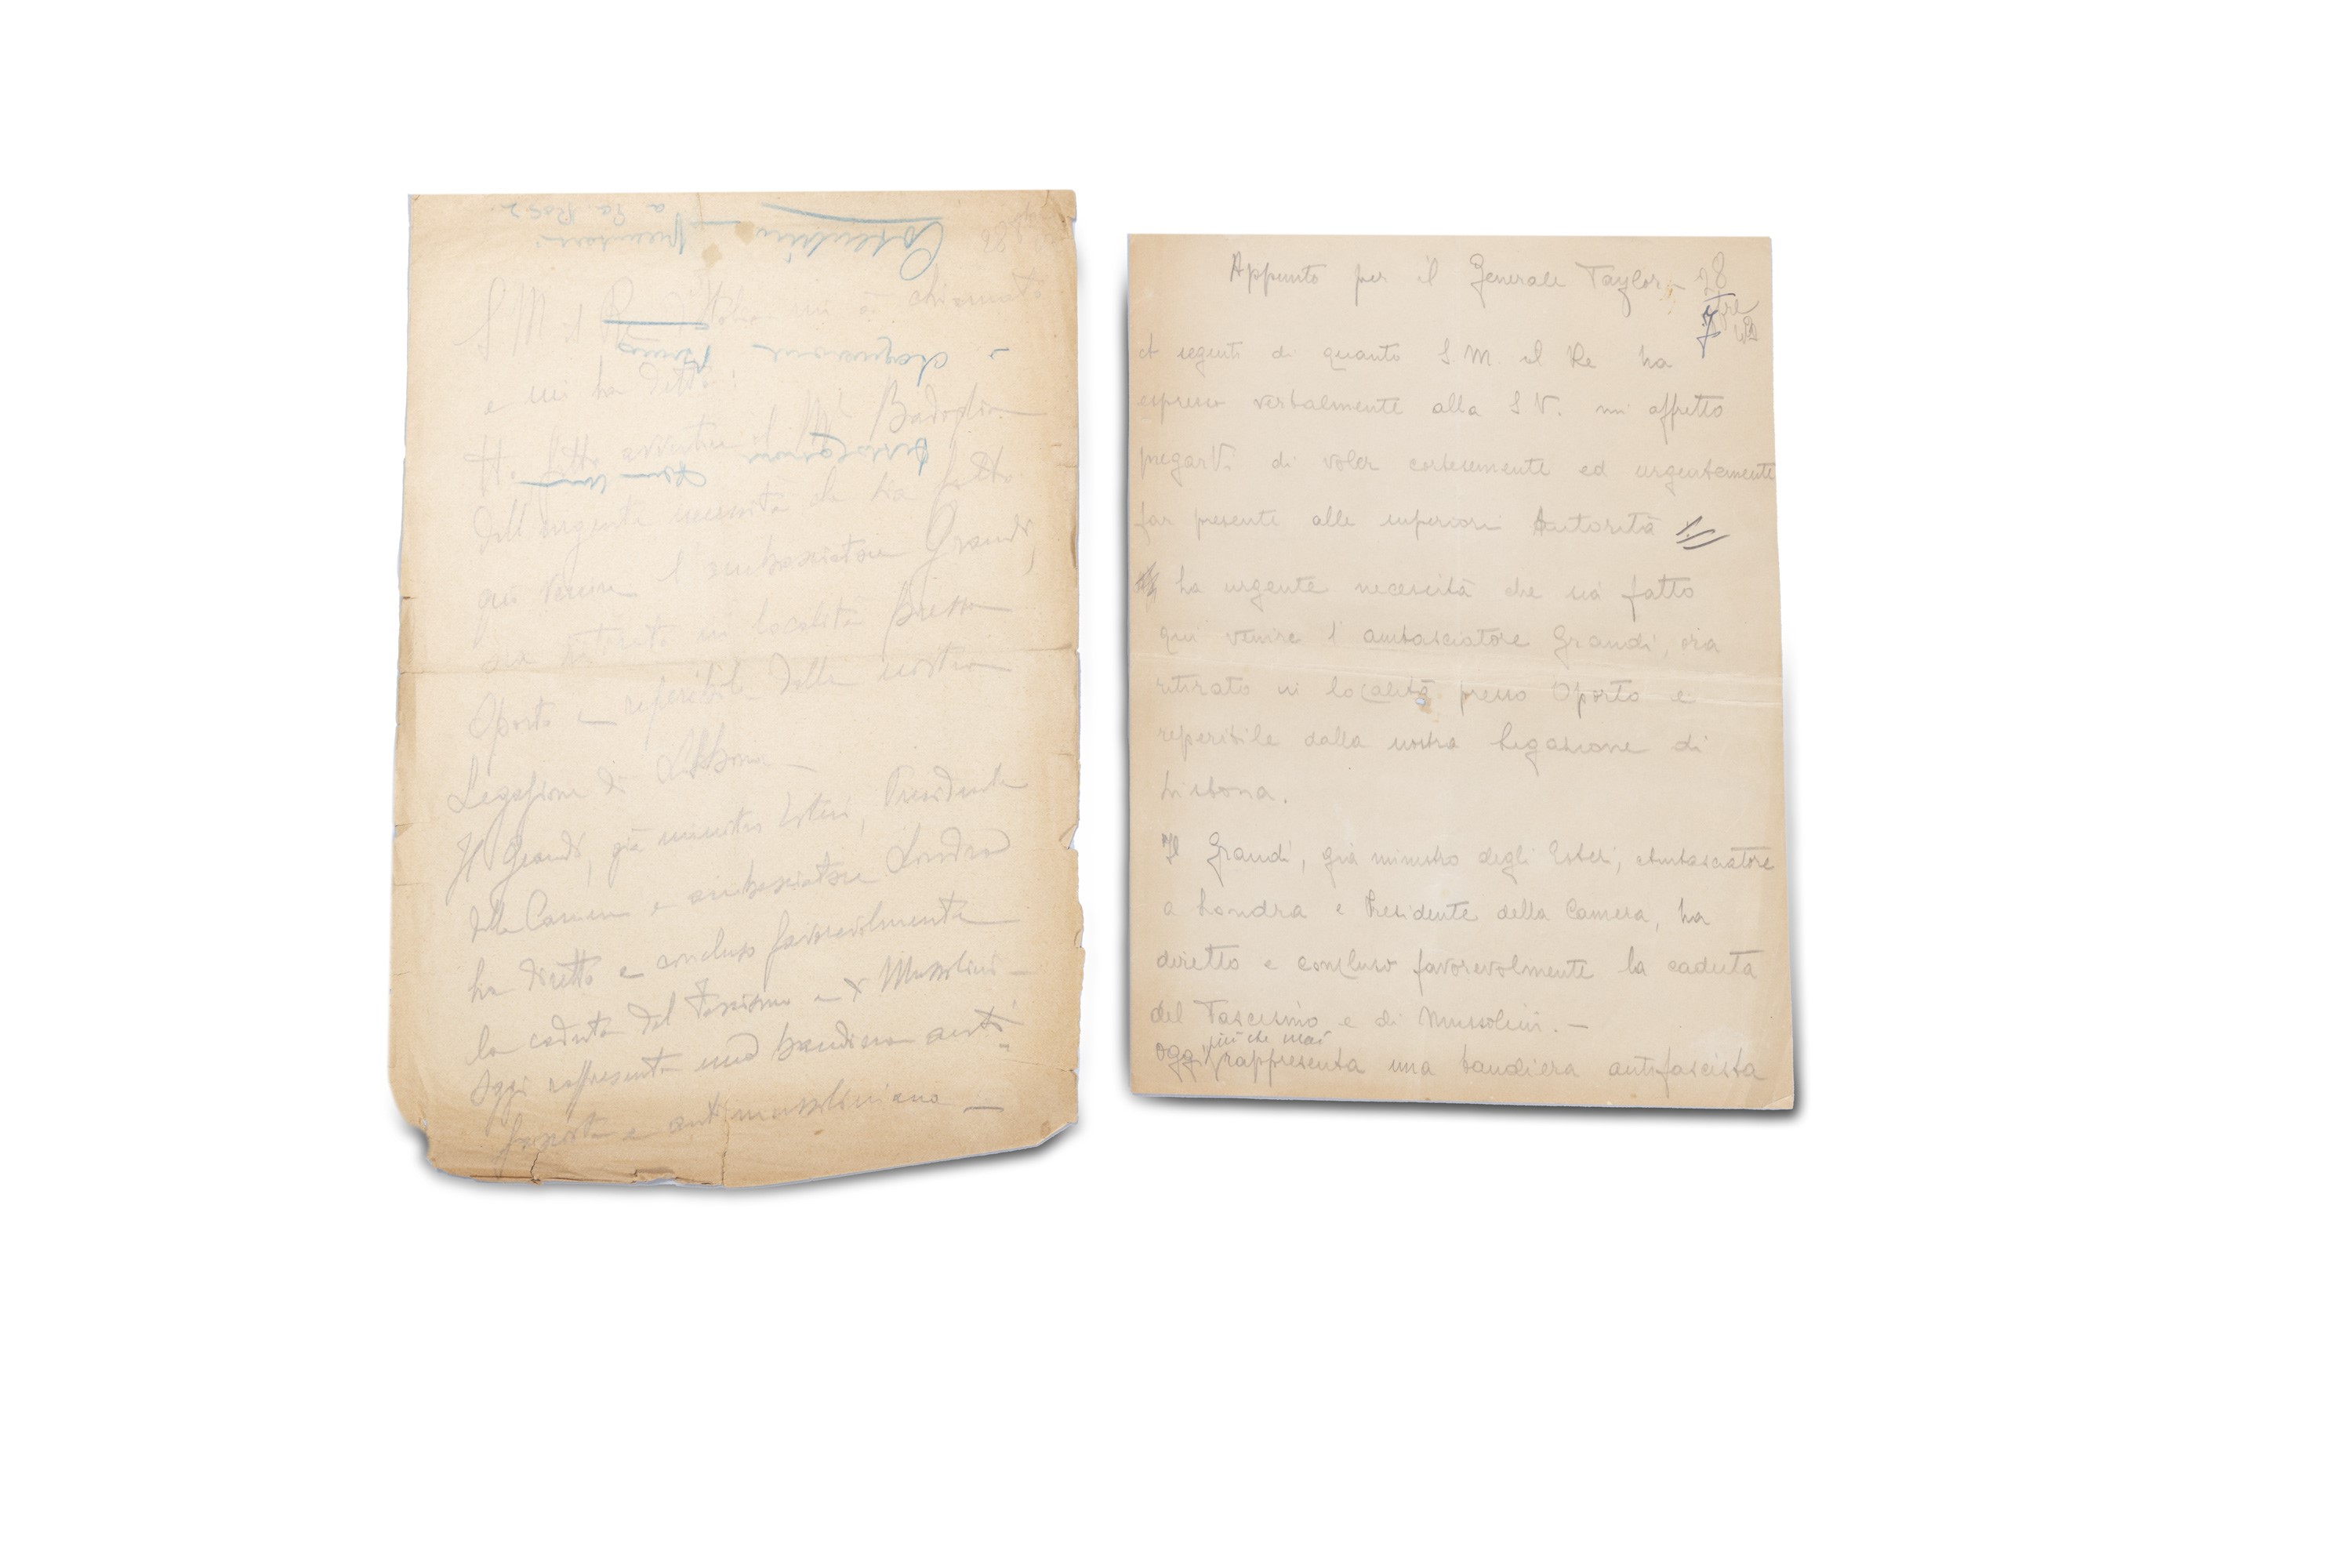 S M il Re d'Italia mi à chiamato
e mi ha detto:
Ho fatto avvertire il Mº Badoglio
dell'urgente necessità che sia fatto
qui venire l'ambasciatore Grandi,
ora ritirato in località Presso
Oporto e reperibile dalla nostra
Legazione di Lisbona —
Il Grandi, già ministro Esteri, Presidente
della Camera e ambasciatore Londra
ha diretto e concluso favorevolmente
la caduta del Fascismo e Mussolini —
Oggi rappresenta una bandiera anti=
fascista e antimussoliniana —
Cosentino — presentare
a La Rosa
Appunto per il Generale Taylor — 28
7bre
A seguito di quanto S. M. il Re ha
espresso verbalmente alla S V. mi affretto
pregarVi di voler cortesemente ed urgentemente
far presente alle superiori Autorità
ha urgente necessità che sia fatto
qui venire l'ambasciatore Grandi, ora
ritirato in località presso Oporto e
reperibile dalla nostra Legazione di
Lisbona.
Il Grandi, già ministro degli Esteri, Ambasciatore
a Londra e Presidente della Camera, ha
diretto e concluso favorevolmente la caduta
del Fascismo e di Mussolini. —
più che mai
Oggi, rappresenta una bandiera antifascista